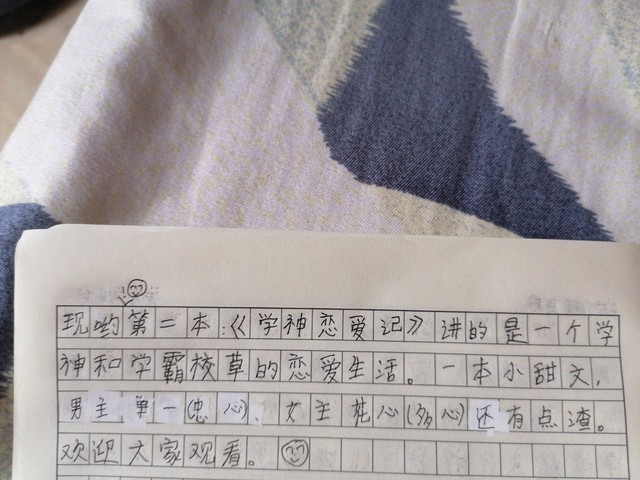 现哟第二本:《学神恋爱记》讲的是一个学
神和学霸校草的恋爱生活。一本小甜文,
男主单一(忠心)、女主花心(多心)还有点渣。
欢迎大家观看。